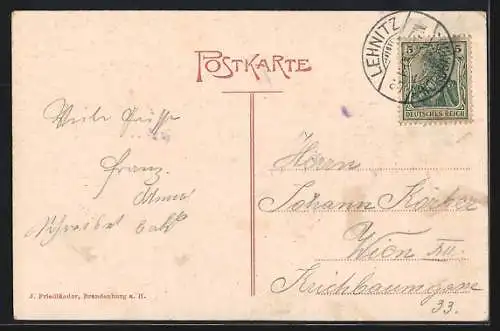 POSTKARTE
LEHNITZ
5 5
DEUTSCHES REICH
Viele Grüsse
Franz.
Anna
schreibet bald
Herrn
Johann Körber
Wien XII.
Krichbaumgasse
33.
J. Friedländer, Brandenburg a. H.